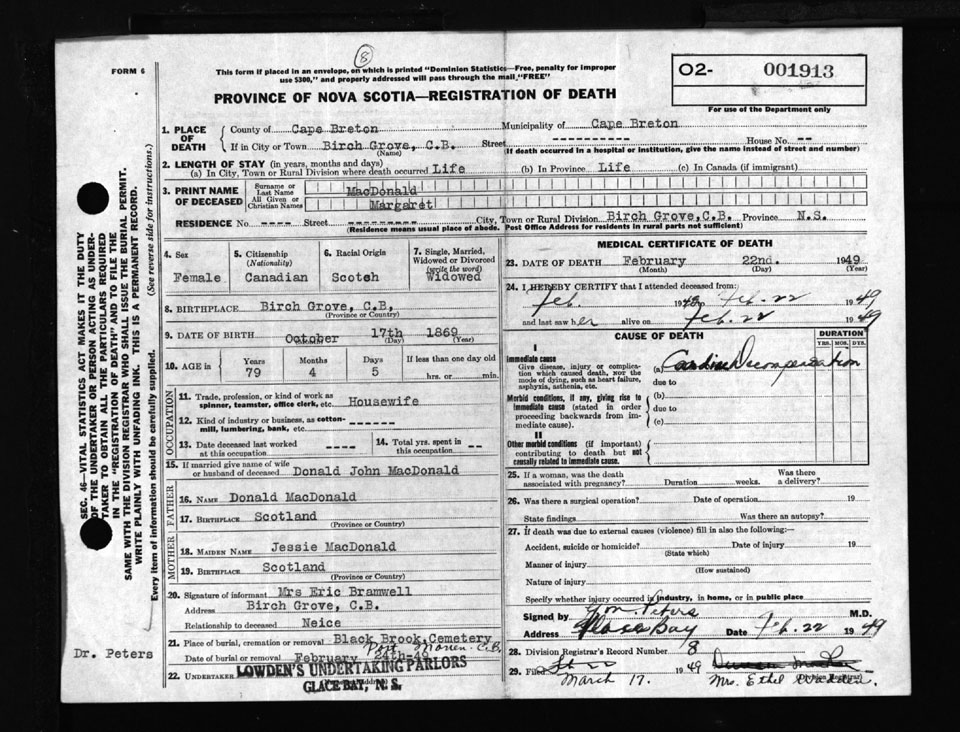 8
FORM 6
This form if placed in an envelope, on which is printed "Dominion Statistics—Free, penalty for improper
use $300," and properly addressed will pass through the mail "FREE"
PROVINCE OF NOVA SCOTIA—REGISTRATION OF DEATH
O2- 001913
For use of the Department only
1. PLACE OF DEATH
County of Cape Breton Municipality of Cape Breton
If in City or Town Birch Grove, C.B. Street -------------- House No. --
(Name) If death occurred in a hospital or institution, give the name instead of street and number)
2. LENGTH OF STAY (in years, months and days)
(a) In City, Town or Rural Division where death occurred Life (b) In Province Life (c) In Canada (if immigrant)
3. PRINT NAME OF DECEASED
Surname or Last Name MacDonald
All Given or Christian Names Margaret
RESIDENCE No. ---- Street -------- City, Town or Rural Division Birch Grove,C.B. Province N.S.
(Residence means usual place of abode. Post Office Address for residents in rural parts not sufficient)
4. Sex
Female
5. Citizenship
(Nationality)
Canadian
6. Racial Origin
Scotch
7. Single, Married,
Widowed or Divorced
(write the word)
Widowed
8. BIRTHPLACE Birch Grove, C.B,
(Province or Country)
9. DATE OF BIRTH October 17th 1869
(Month) (Day) (Year)
10. AGE in Years Months Days If less than one day old
79 4 5 hrs. or min.
OCCUPATION
11. Trade, profession, or kind of work as
spinner, teamster, office clerk, etc. Housewife
12. Kind of industry or business, as cotton-
mill, lumbering, bank, etc. -----
13. Date deceased last worked
at this occupation ----
14. Total yrs. spent in
this occupation --
15. If married give name of wife
or husband of deceased Donald John MacDonald
FATHER
16. NAME Donald MacDonald
17. BIRTHPLACE Scotland
(Province or Country)
MOTHER
18. MAIDEN NAME Jessie MacDonald
19. BIRTHPLACE Scotland
(Province or Country)
20. Signature of informant Mrs Eric Bramwell
Address Birch Grove, C.B.
Relationship to deceased Neice
21. Place of burial, cremation or removal Black Brook Cemetery
Port Morien C.B.
Date of burial or removal February 24th-49
22. UNDERTAKER LOWDEN'S UNDERTAKING PARLORS
GLACE BAY, N. S.
Dr. Peters
MEDICAL CERTIFICATE OF DEATH
23. DATE OF DEATH February 22nd. 1949
(Month) (Day) (Year)
24. I HEREBY CERTIFY that I attended deceased from:
Feb. 1949 to Feb. 22 1949
and last saw her alive on Feb. 22 1949
CAUSE OF DEATH
DURATION
YRS. MOS. DYS.
I
Immediate cause
Give disease, injury or complica-
tion which caused death, not the
mode of dying, such as heart failure,
asphyxia, asthenia, etc.
(a) Cardiac Decompensation
due to
Morbid conditions, if any, giving rise to
immediate cause (stated in order
proceeding backwards from im-
mediate cause).
(b)
due to
(c)
II
Other morbid conditions (if important)
contributing to death but not
causally related to immediate cause.
25. If a woman, was the death
associated with pregnancy? Duration weeks. Was there
a delivery?
26. Was there a surgical operation? Date of operation 19
State findings Was there an autopsy?
27. If death was due to external causes (violence) fill in also the following:—
Accident, suicide or homicide? Date of injury 19
(State which)
Manner of injury
(How sustained)
Nature of injury
Specify whether injury occurred in industry, in home, or in public place
Signed by Wm. Peters M.D.
Address Glace Bay Date Feb. 22 1949
28. Division Registrar's Record Number 8
29. Filed 1949
March 17. Mrs. Ethel Wadden.
(Division Registrar)
SEC. 46—VITAL STATISTICS ACT MAKES IT THE DUTY
OF THE UNDERTAKER OR PERSON ACTING AS UNDER-
TAKER TO OBTAIN ALL THE PARTICULARS REQUIRED
IN THE "REGISTRATION OF DEATH" AND TO FILE THE
SAME WITH THE DIVISION REGISTRAR WHO SHALL ISSUE THE BURIAL PERMIT.
WRITE PLAINLY WITH UNFADING INK. THIS IS A PERMANENT RECORD.
Every item of information should be carefully supplied. (See reverse side for instructions.)